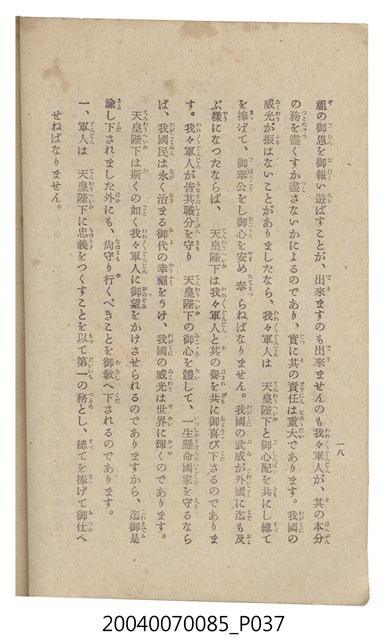 祖の御恩を御報い遊ばすことが、出來ますのも出來ませんのも我々軍人が、其の本分
の務を盡くすか盡さないかによるのであり、實に其の責任は重大であります。我國の
威光が振はないことがありましたなら、我々軍人は　天皇陛下と御心配を共にし總て
を捧げて、御奉公をし御心を安め奉らねばなりません。我國の武威が外國に迄も及
ぶ樣になつたならば、　天皇陛下は我々軍人と其の譽を共に御喜び下さるのでありま
す。我々軍人が皆其職分を守り　天皇陛下の御心を體して、一生懸命國家を守るなら
ば、我國民は永く治まる御代の幸福をうけ、我國の威光は世界に輝くのであります。
　天皇陛下は斯くの如く我々軍人に御望をかけさせられるのでありますから、迄御是
諭し下されました外にも、尙守り行くべきことを御敎へ下されるのであります。
一、軍人は　天皇陛下に忠義をつくすことを以て第一の務とし、總てを捧げて御仕へ
せねばなりません。
一八
20040070085_P037